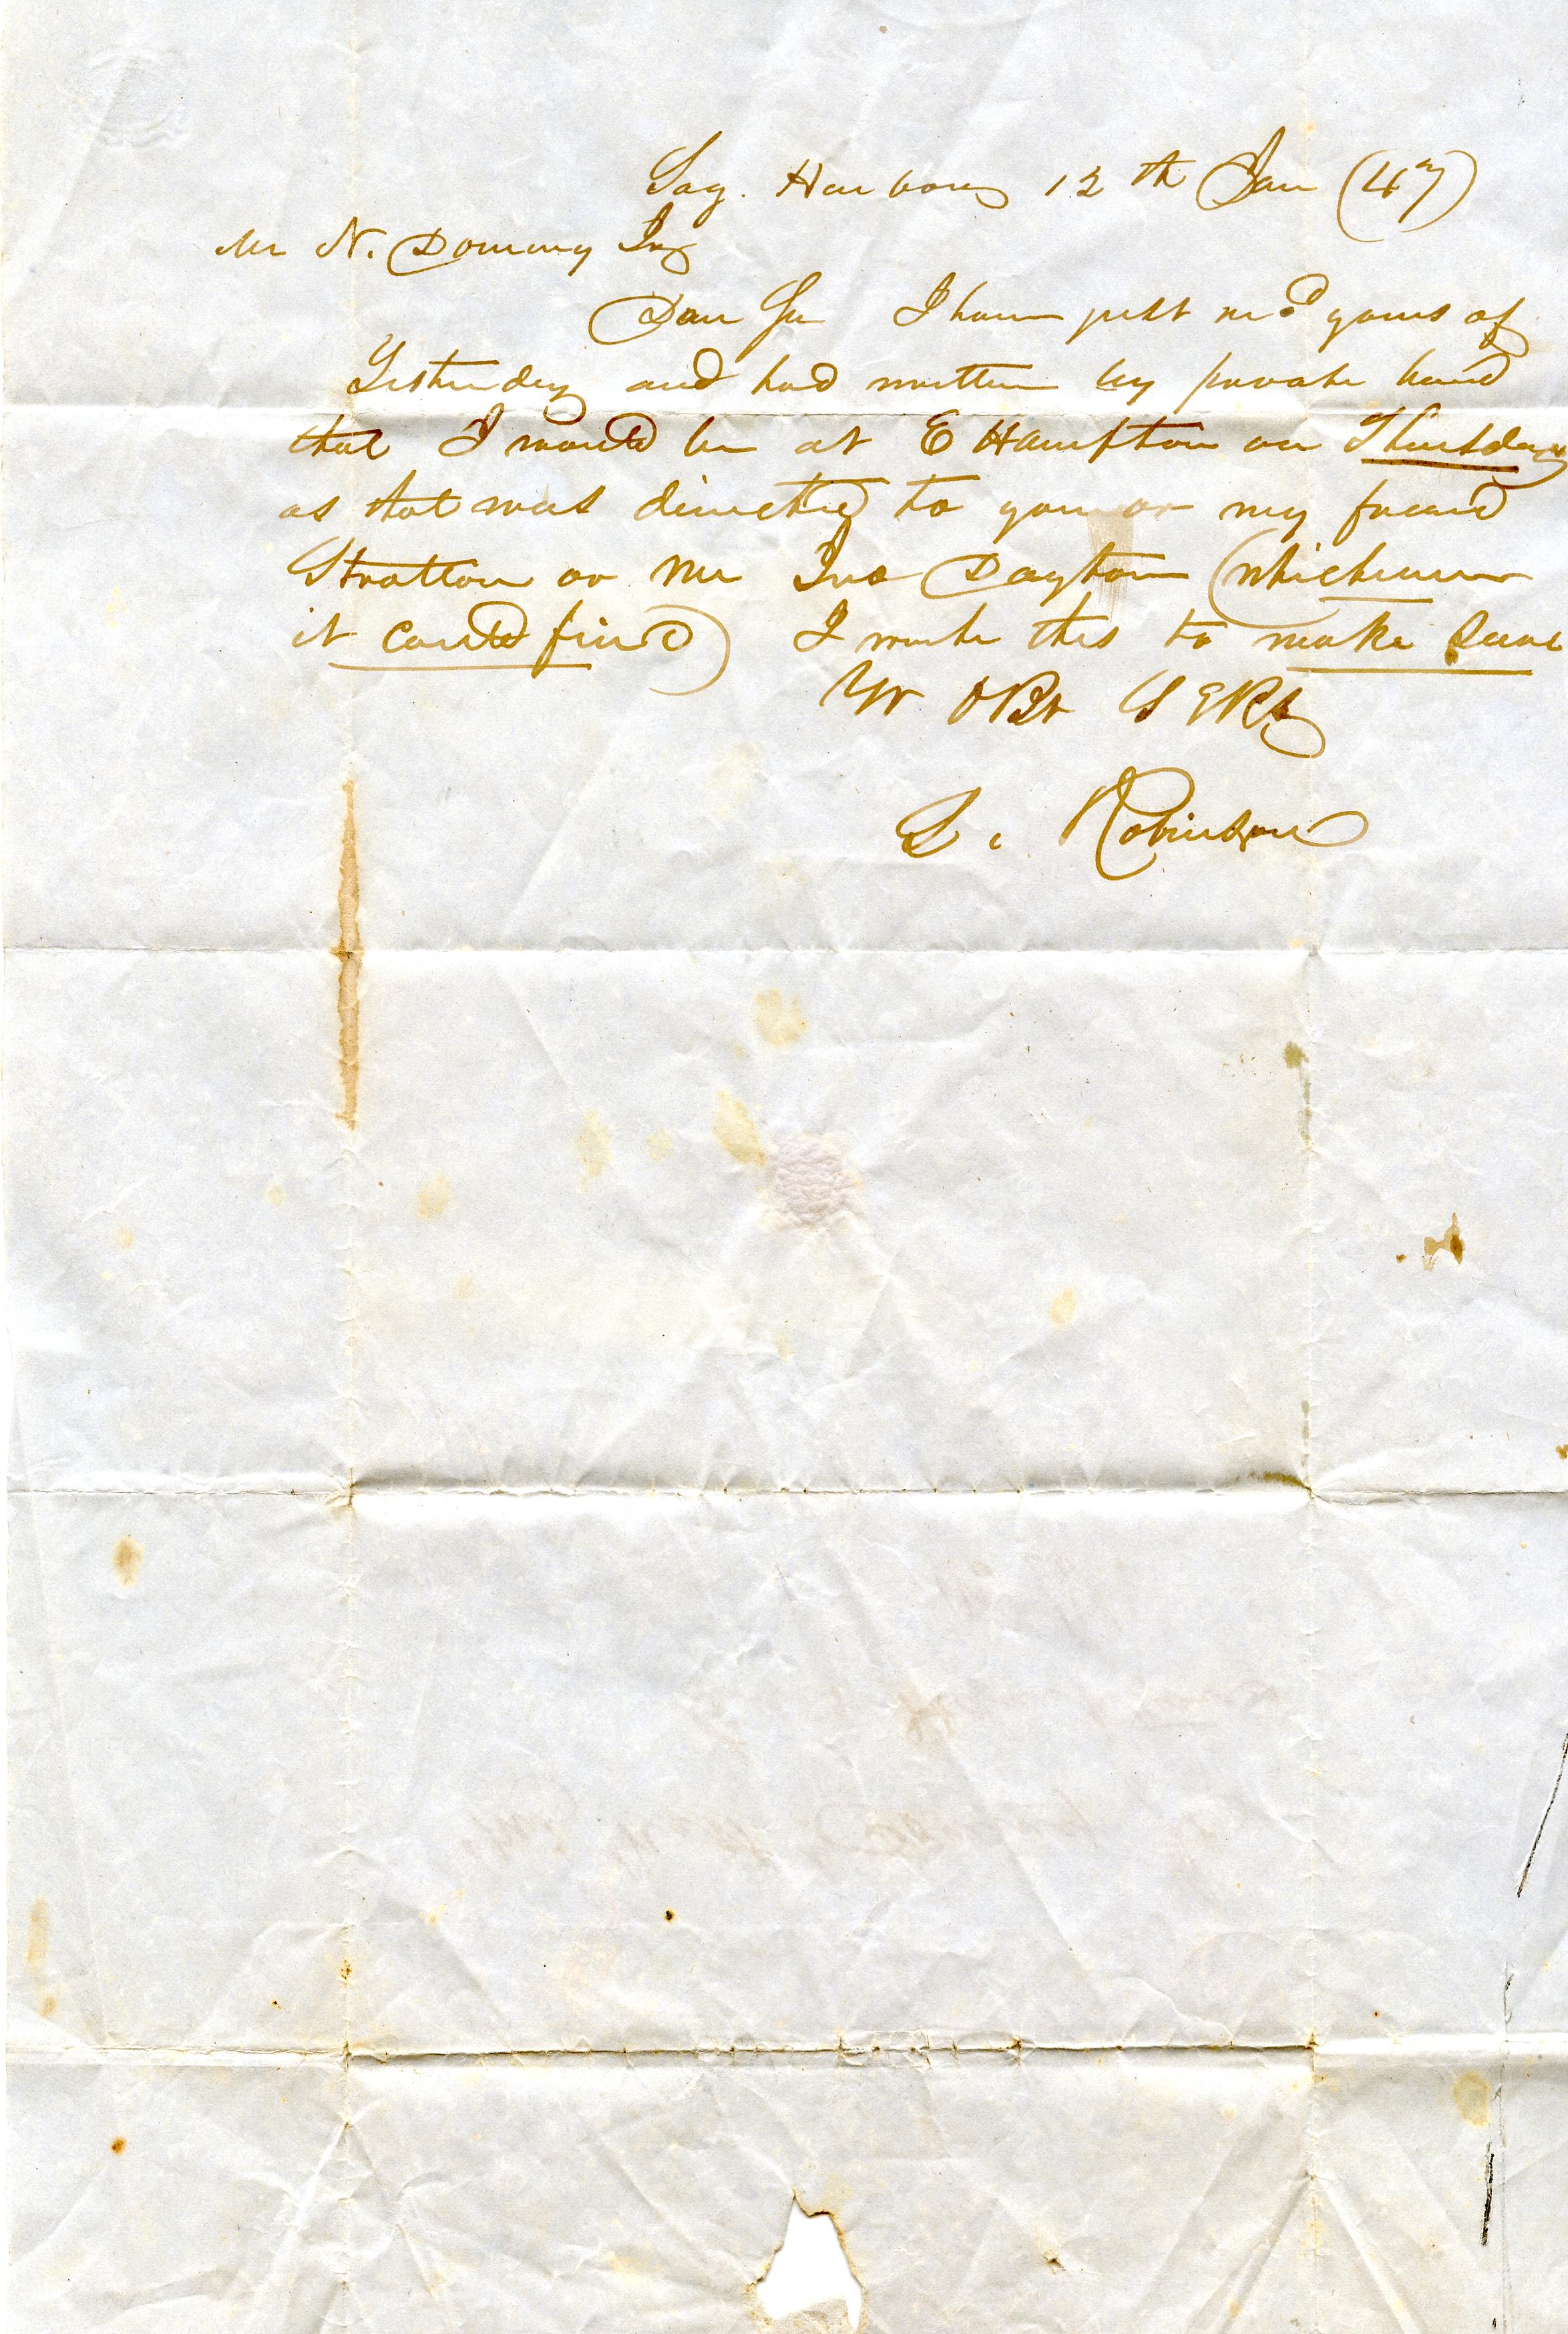 Sag. Harbour 12 th Jan (47)
Mr N. Dominy
Dear Sir I have just recd yours of
Yesterday and had written by private hand
that I would be at E Hampton on Thursday
as that was directed to you or my friend
Stratton or Mr Jno Dayton (whichever
it could find) I write this to make sure
Yr OBt SERt
S. Robinson